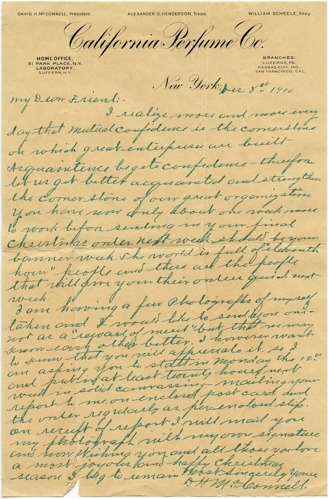 DAVID H. McCONNELL, President
ALEXANDER D. HENDERSON, Treas.
WILLIAM SCHEELE, Secy.
California Perfume Co.
HOME OFFICE:
31 PARK PLACE, N.Y.
LABORATORY,
SUFFERN, N.Y.
BRANCHES:
LUZERNE, PA.
KANSAS CITY, MO.
SAN FRANCISCO, CAL.
New York, Dec. 3rd 1910
My Dear Friend:-
I realize more and more every
day that mutual confidence is the cornerstone
on which great enterprises are built
Acquaintance begets confidence - therefore
let us get better acquainted and strengthen
the cornerstone of our great organization
You have now only about one week more
to work before sending in your final
Christmas order next week should be your
banner week. The world is full of "eleventh
hour" people and these are the people
that will give you their orders next
week
I am having a few Photographs of myself
taken and I would like to send you one -
not as a reward of merit but that we may
know each other better. I however want
to know that you will appreciate it so I
am asking you to start in Monday the 12th
and put in at least twenty hours next
week in solid canvassing - mailing your
report to me on enclosed post card and
the order regularly as per enclosed slip.
on receipt of report I will mail you
my photograph with my own signature
and now wishing you and all those you love
a most joyous and happy Christmas
season I beg to remain Most sincerely yours
D H McConnell.